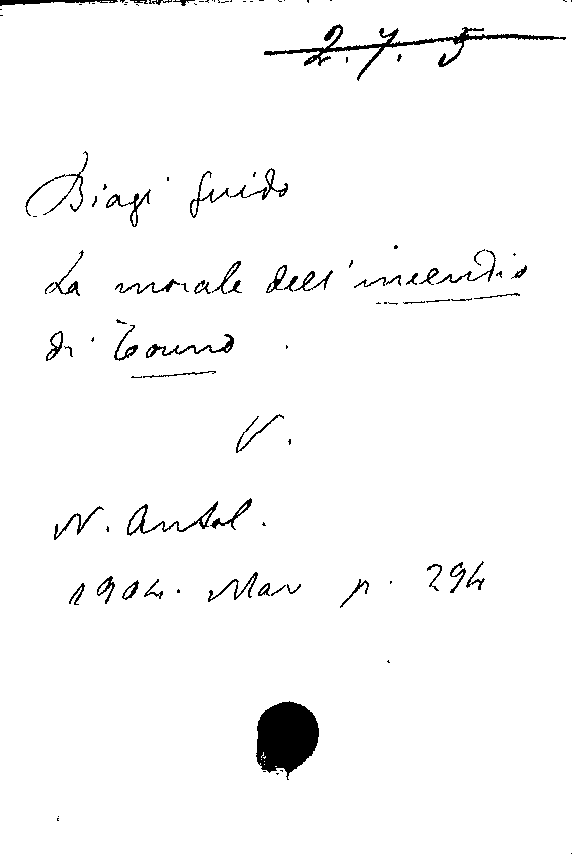 2. 7. 5
Biagi Guido
La morale dell'incendio
di Torino.
V.
N. Antol.
1904. Mar p. 294